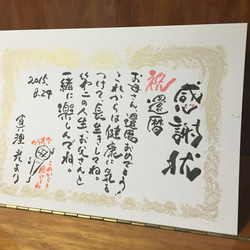 感謝状
祝
還暦
お母さん、還暦おめでとう！
これからは健康に気を
つけて、長生きしてね。
第二の人生、お父さんと
一緒に楽しんでね。
2015.
8.29
真理 光より